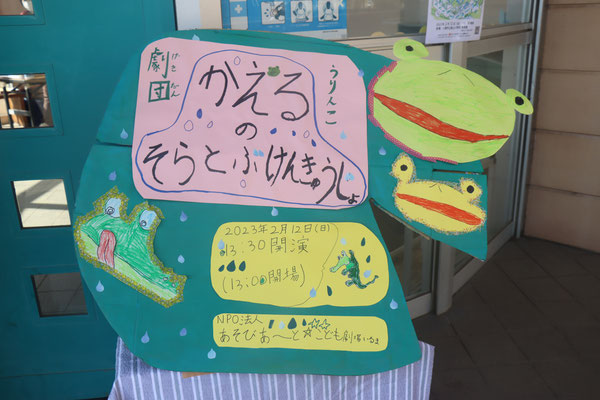 劇団
げきだん
うりんこ
かえる
の
そらとぶけんきゅうじょ
2023年2月12日(日)
13:30開演
(13:00開場)
NPO法人
あそびあ〜と☆こども劇場いるま